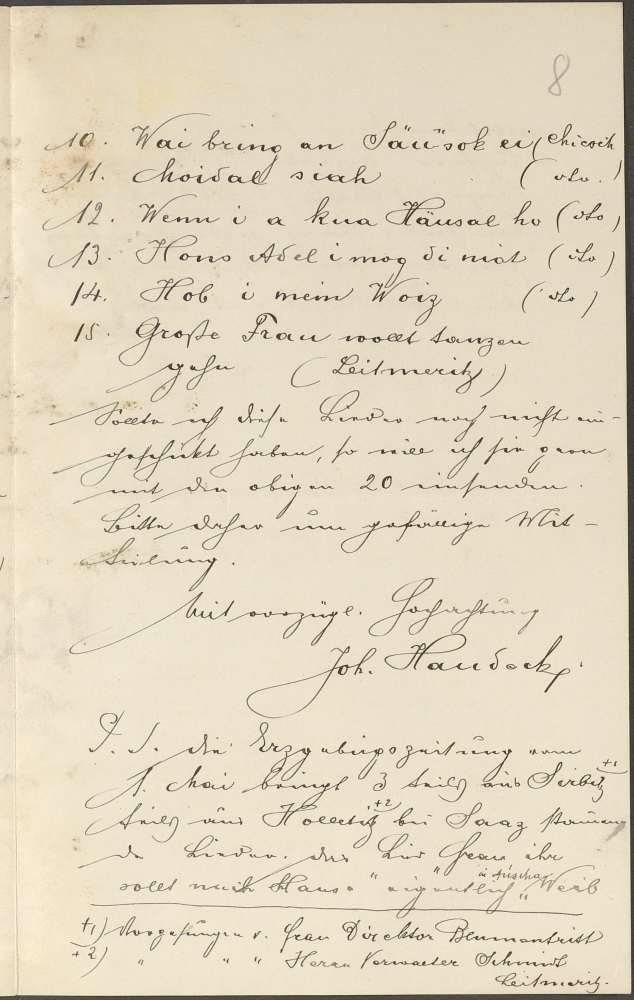 8
10. Wai bring an Säüsok ei (
11. Moidal siah (dto.)
12. Wenn i a kua Häusal ho (dto)
13. Hons Adel i mog di niat (dto)
14. Hob i mein Woiz (dto)
15. Große Frau wollt tanzen
gehn (Leitmeritz)
Sollte ich diese Lieder noch nicht ein-
geschickt haben, so will ich sie gern
mit den obigen 20 einsenden.
Bitte daher um gefällige Mit-
teilung.
Mit vorzügl. Hochachtung
Joh. Haudeck.
P. S. die Erzgebirgszeitung vom
1. Mai bringt 3 teils aus Sirbitz +1
teils aus Holletitz +2 bei Saaz stammen
de Lieder. das Lied "Frau ihr
in Auscha
sollt nach Hause" eigentlich "Weib
+1) Vorgesungen v. Frau Direktor Blumentritt
+2) " " " Herrn Verwalter Schmidt
Leitmeritz.